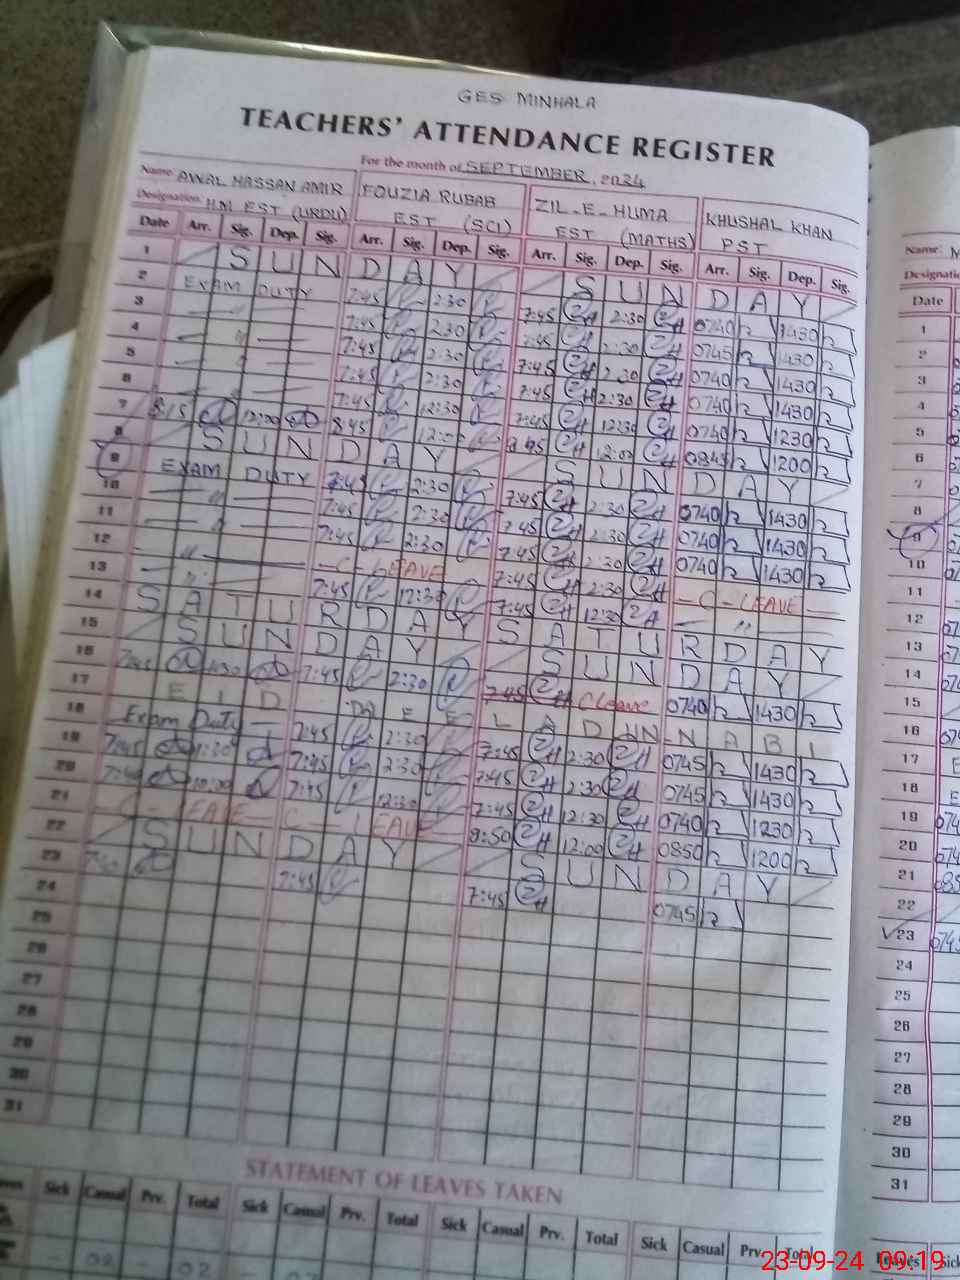 GES MINHALA
TEACHERS' ATTENDANCE REGISTER
For the month of SEPTEMBER, 2024
Name: AWAL HASSAN AMIR FOUZIA RUBAB ZIL-E-HUMA KHUSHAL KHAN
Designation: H.M EST (URDU) EST (SCI) EST (MATHS) PST
Date Arr. Sig. Dep. Sig. Arr. Sig. Dep. Sig. Arr. Sig. Dep. Sig. Arr. Sig. Dep. Sig.
1 SUNDAY SUNDAY
2 EXAM DUTY 7:45 2:30 7:45 2:30 0740 1430
3 " 7:45 2:30 7:45 2:30 0745 1430
4 " 7:45 2:30 7:45 2:30 0740 1430
5 " 7:45 2:30 7:45 2:30 0740 1430
6 " 7:45 12:30 7:45 12:30 0740 1230
7 8:15 12:00 8:45 12:00 8:45 12:00 0845 1200
8 SUNDAY SUNDAY
9 EXAM DUTY 7:45 2:30 7:45 2:30 0740 1430
10 " 7:45 2:30 7:45 2:30 0740 1430
11 " 7:45 2:30 7:45 2:30 0740 1430
12 " -C-LEAVE 7:45 2:30 -C-LEAVE-
13 " 7:45 12:30 7:45 12:30 "
14 SATURDAY SATURDAY
15 SUNDAY SUNDAY
16 7:45 7:45 2:30 7:45 C leave 0740 1430
17 EID MILADUN-NABI
18 Exam Duty 7:45 2:30 7:45 2:30 0745 1430
19 7:45 7:45 2:30 7:45 2:30 0745 1430
20 7:45 12:30 7:45 12:30 0740 1230
21 -C-LEAVE-C-LEAVE- 8:50 12:00 0850 1200
22 SUNDAY SUNDAY
23 7:45 7:45 0745
24
25
26
27
28
29
30
31
STATEMENT OF LEAVES TAKEN
Sick Casual Prv. Total Sick Casual Prv. Total Sick Casual Prv. Total Sick Casual Prv. Total
02 02
Name: M
Date
1
2
3
4
5
6
7
8
9
10
11
12
13
14
15
16
17
18
19
20
21
22
23
24
25
26
27
28
29
30
31
Leaves
23-09-24 09:19